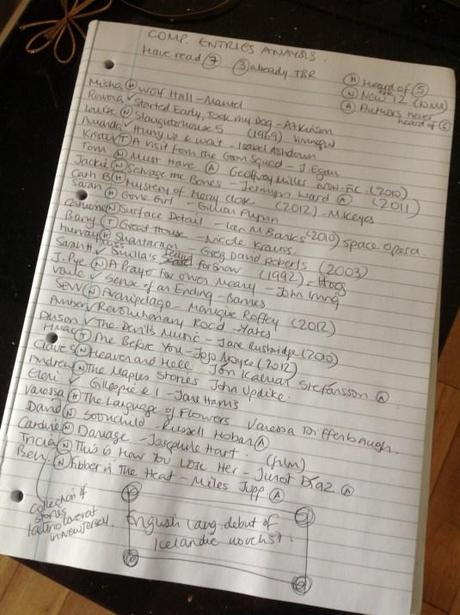 COMP. ENTRIES ANALYSIS.
Have read 7 3 already TBR H Heard of 5
N New 12 A Authors never heard of
Misha H Wolf Hall - Mantel
Rowena ✓ Started Early, Took my Dog - Atkinson
Louise N Slaughterhouse 5 (1969)
Amanda ✓ Hurry up & wait - Isabel Ashdown
T A Visit from the Goon Squad - J. Egan
Tom N Must Have A Geoffrey Miller NON-FIC (2010)
Jackie N Salvage the Bones - Jesmyn Ward A (2011)
Cath B H Mystery of Mercy Close (2012) - M Keyes
Sarah H Gone Girl - Gillian Flynn
N Surface Detail - Ian M Banks (2010) Space Opera.
Barry T Great House - Nicole Krauss
H Shantaram - Greg David Roberts (2003)
Sarah ✓ Smilla's feeling for Snow (1992) - Hoeg
J. Pye N A Prayer for Owen Meany - John Irving
✓ Sense of an Ending - Barnes
N Archipelago - Monique Roffey (2012)
Amber ✓ Revolutionary Road - Yates
Alison ✓ The Devil's Music - Jane Rusbridge
T Me Before You - Jojo Moyes (2012)
Claire S N Heaven and Hell Jón Kalman Stefansson A (2010)
Andrew N The Maples Stories John Updike.
✓ Gillespie & I - Jane Harris
Vanessa H The Language of Flowers Vanessa Diffenbaugh.
David N Soonchild - Russell Hoban A
Caroline N Damage - Josephine Hart. (film)
Tricia N This is How You Lose Her - Junot Diaz A
Ben N Fibber in the Heat - Miles Jupp A
Collection of stories
latino love at
in New Jersey.
English lang. debut of
Icelandic novelist.